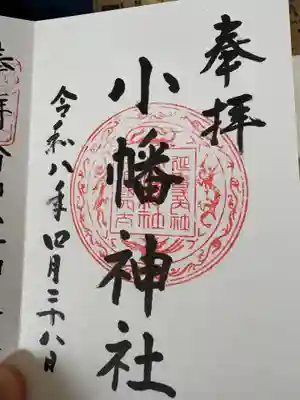 奉拝
小幡神社
令和八年四月二十八日